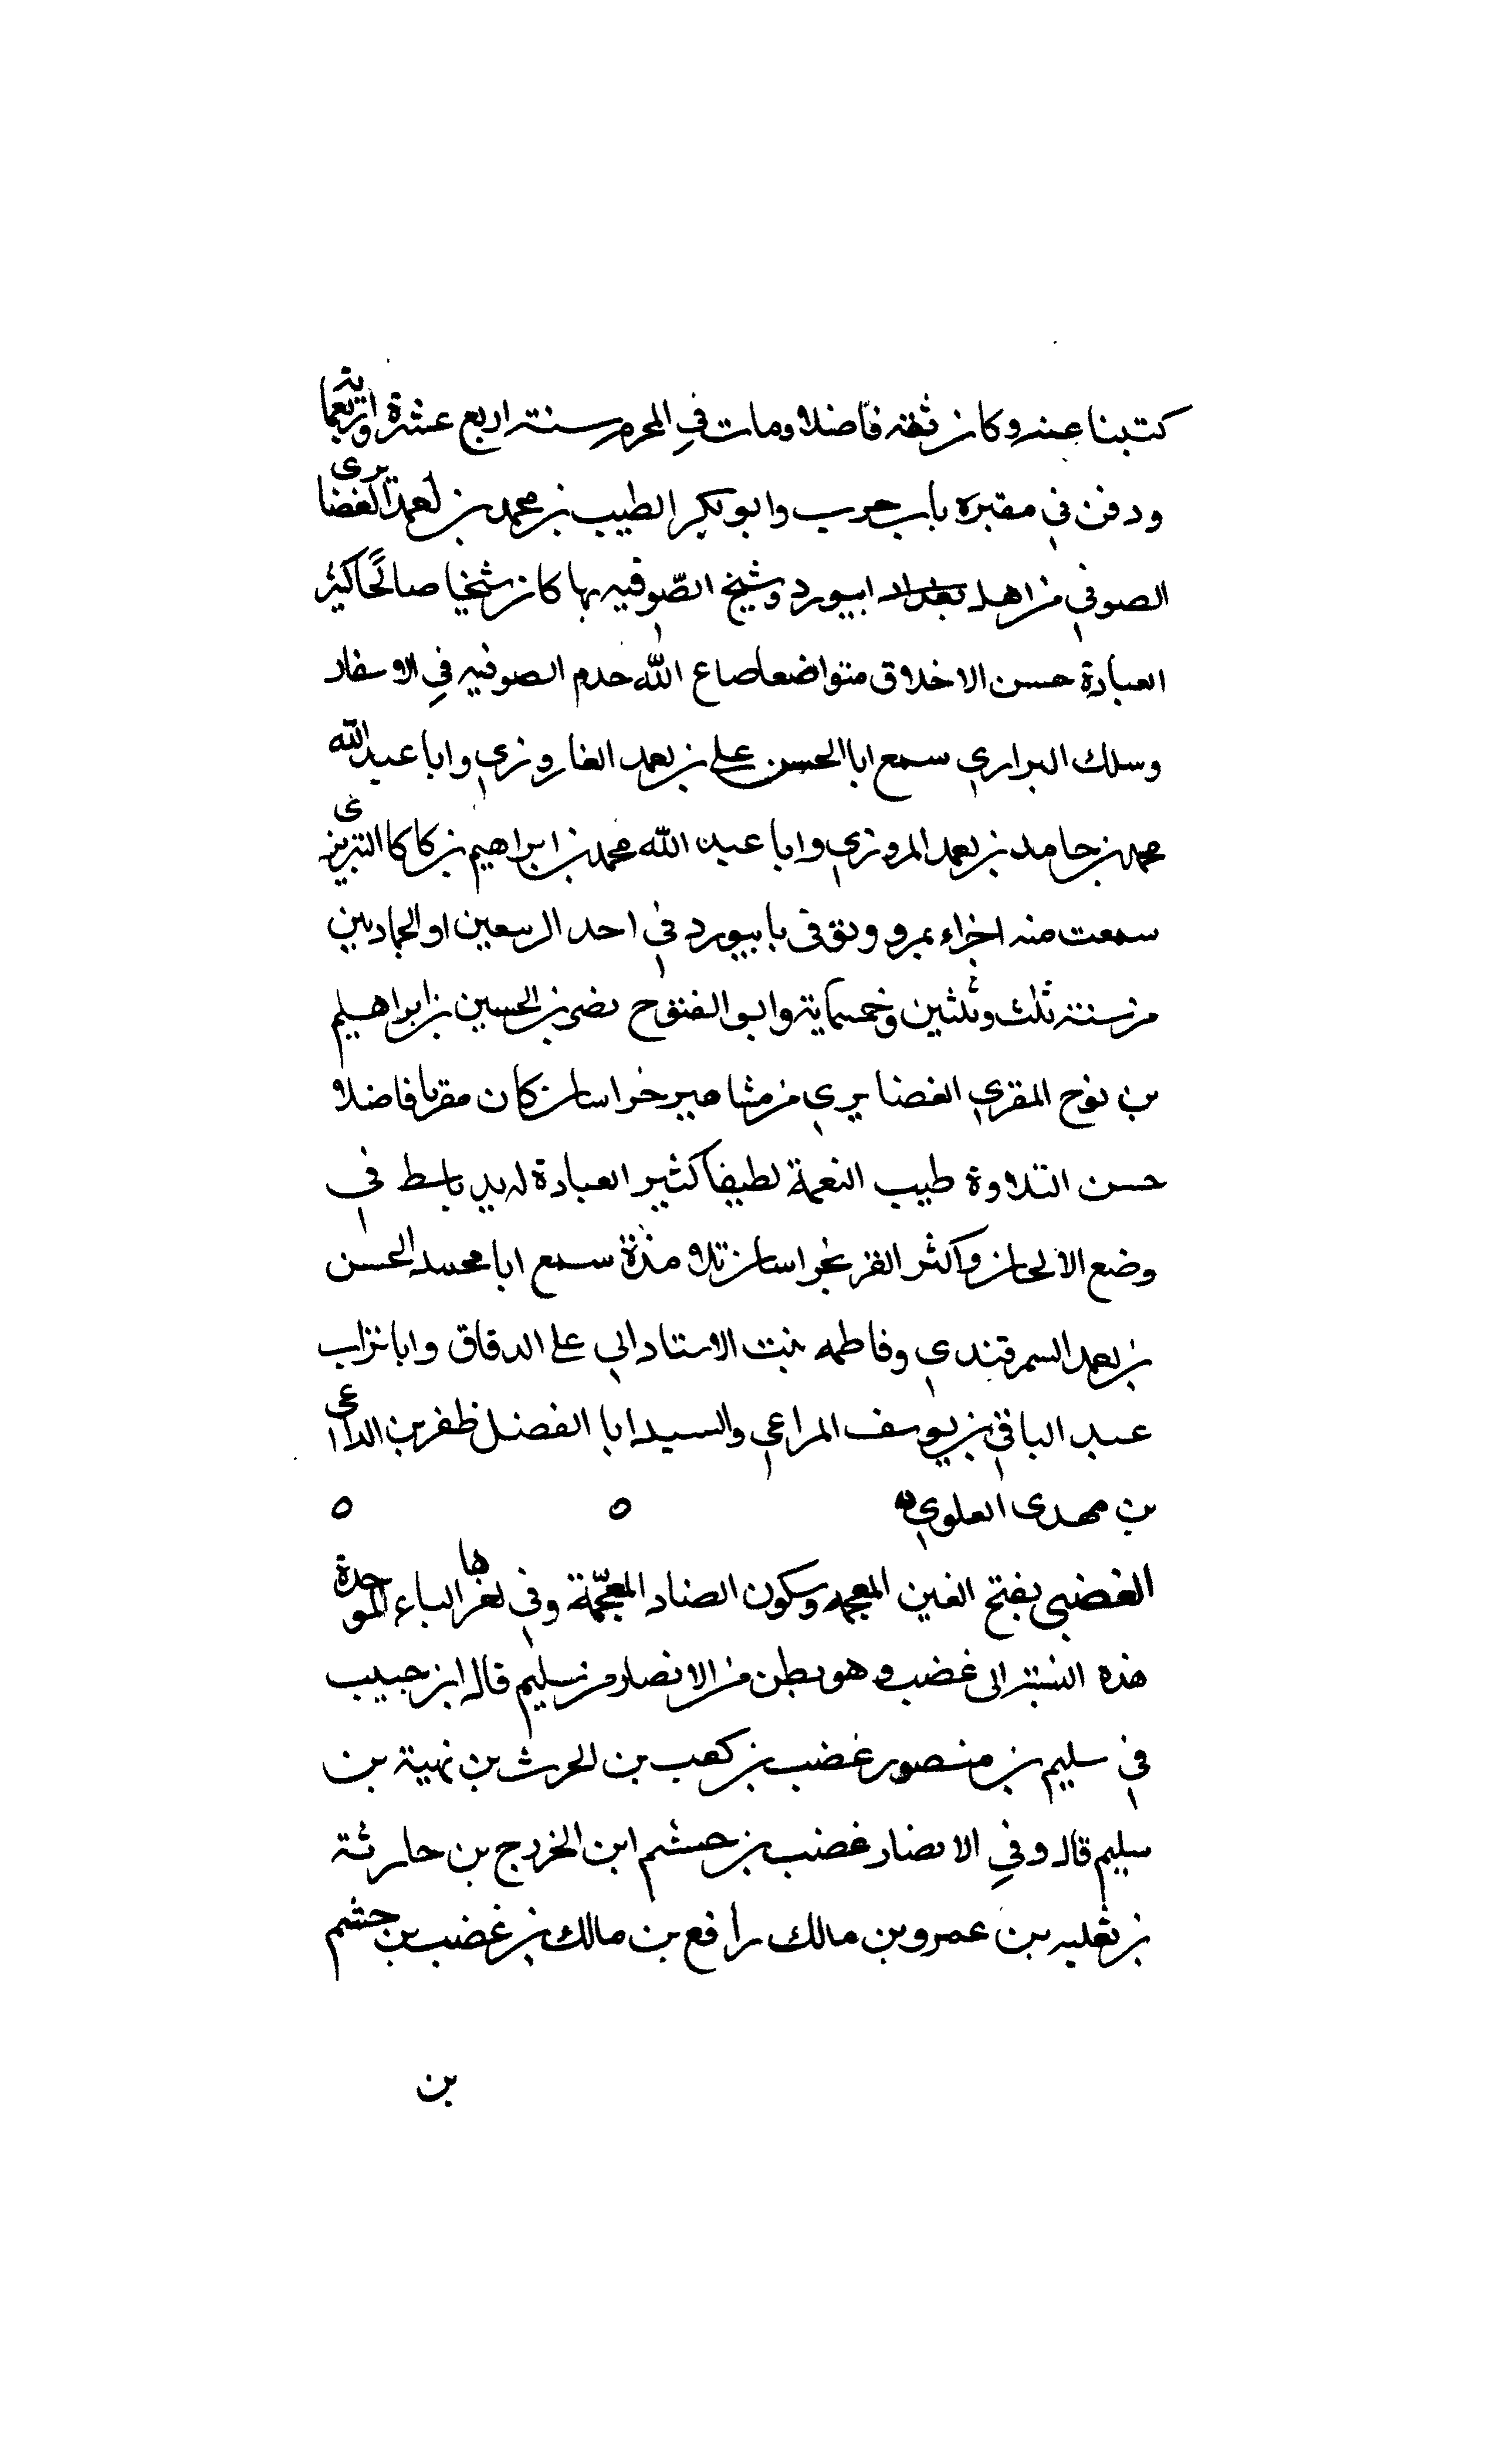 كتبنا عنه وكان ثقة فاضلا ومات في المحرم سنة اربع عشرة واربعمائة
ودفن في مقبرة باب حرب وابو بكر الطيب بن محمد بن احمد الغضايرى
الصوفي من اهل بغداد ابيورد وشيخ الصّوفيه بها كان شيخا صالحًا كثير
العبادة حسن الاخلاق متواضعا صاع الله خدم الصوفيه في الاسفار
وسلك البراري سمع ابا الحسن علي بن احمد الفاروزي وابا عبد الله
محمد بن حامد بن احمد المروزي وابا عبد الله محمد بن ابراهيم بن كاكا التبريزى
سمعت منه اجزاء بمرو وتوفى بابيورد في احد الربيعين او الجمادين
من سنة ثلث وثلثين وخمسماية وابو الفتوح نصر بن الحسين بن ابراهيم
بن نوح المقري الغضايري من مشاهير خراسان كان مقريا فاضلا
حسن التلاوة طيب النغمة لطيفا كثير العبادة له يد باسط في
وضع الالحان واكثر القز بخراسان تلامذة سمع ابا محمد الحسن
بن احمد السمرقندي وفاطمه بنت الاستاد ابي على الدقاق وابا تراب
عبد الباقي بن يوسف المراغي والسيد ابا الفضل ظفر بن الداعى
بن مهدى العلوي ه ه ه
الغضبى بفتح الغين المعجمه وسكون الضاد المعجّمة وفي اخرها الباء الموحدة
هذه النسبة الى غضب وهو بطن من الانصار من سليم قال ابن حبيب
في سليم بن منصور غضب بن كعب بن الحرث بن نهية بن
سليم قال وفي الانصار غضب بن جشم ابن الخزرج بن حارثة
بن ثعلبه بن عمرو بن مالك رافع بن مالك بن غضب بن جشم
بن